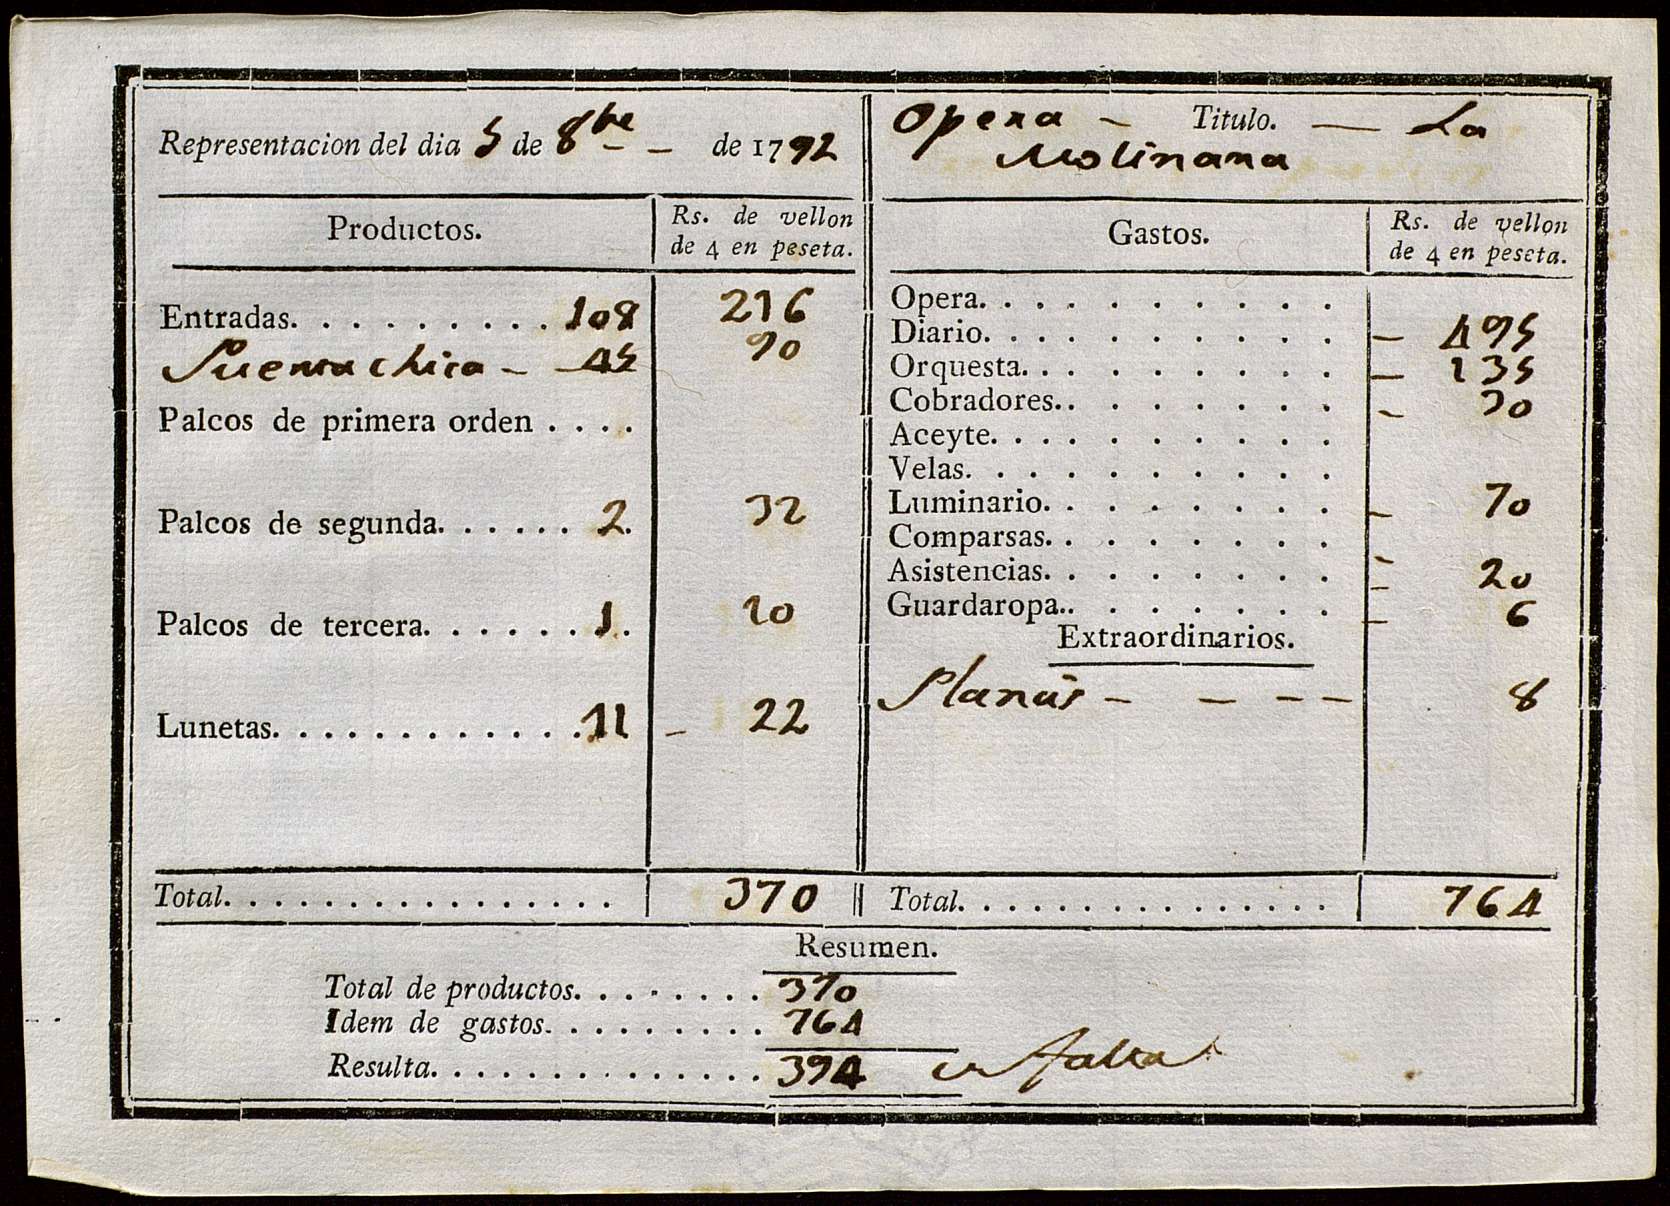 Representacion del dia 5 de 8bre de 1792
Opera - Titulo. — La
Molinara
Productos.
Rs. de vellon
de 4 en peseta.
Entradas. . . . . . . . . . 108 216
Puerta chica - 45 90
Palcos de primera orden . . . .
Palcos de segunda. . . . . . 2. 32
Palcos de tercera. . . . . . . 1. 10
Lunetas. . . . . . . . . . . . . 11 - 22
Total. . . . . . . . . . . . . . . . . 370
Gastos.
Rs. de vellon
de 4 en peseta.
Opera. . . . . . . . . . .
Diario. . . . . . . . . . . - 495
Orquesta. . . . . . . . . . - 135
Cobradores. . . . . . . . . - 30
Aceyte. . . . . . . . . . .
Velas. . . . . . . . . . .
Luminario. . . . . . . . . - 70
Comparsas. . . . . . . . .
Asistencias. . . . . . . . . - 20
Guardaropa. . . . . . . . - 6
Extraordinarios.
- - - - 8
Total. . . . . . . . . . . . . . . . 764
Resumen.
Total de productos. . . . . . . . 370
Idem de gastos. . . . . . . . . 764
Resulta. . . . . . . . . . . . . . . 394 falta